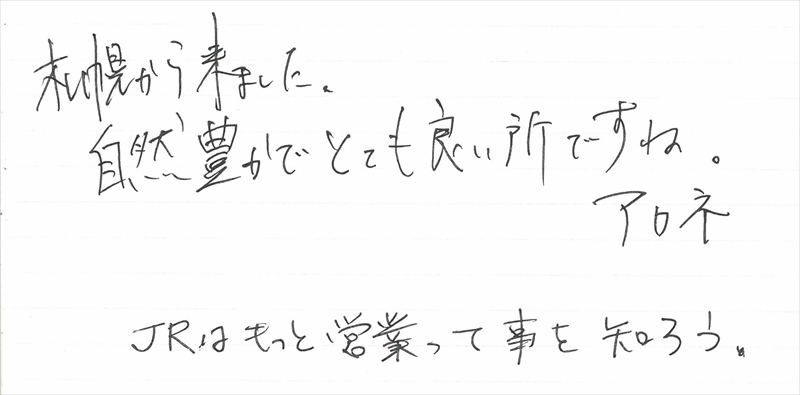 札幌から来ました。
自然豊かでとても良い所ですね。
アロネ
JRはもっと営業って事を知ろう。